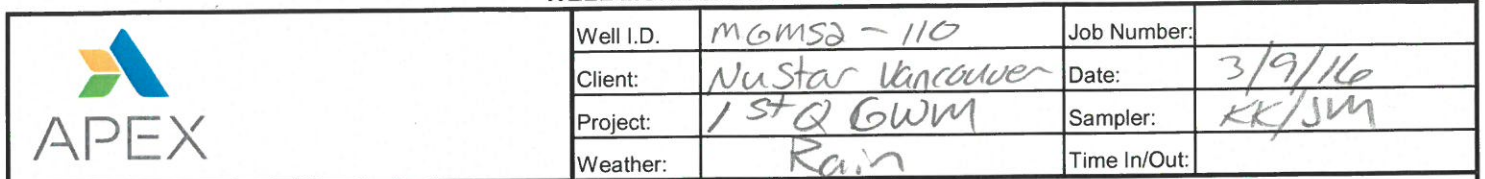 APEX
Well I.D. MGMS2-110 Job Number:
Client: NuStar Vancouver Date: 3/9/16
Project: 1st Q GWM Sampler: KK/JM
Weather: Rain Time In/Out: